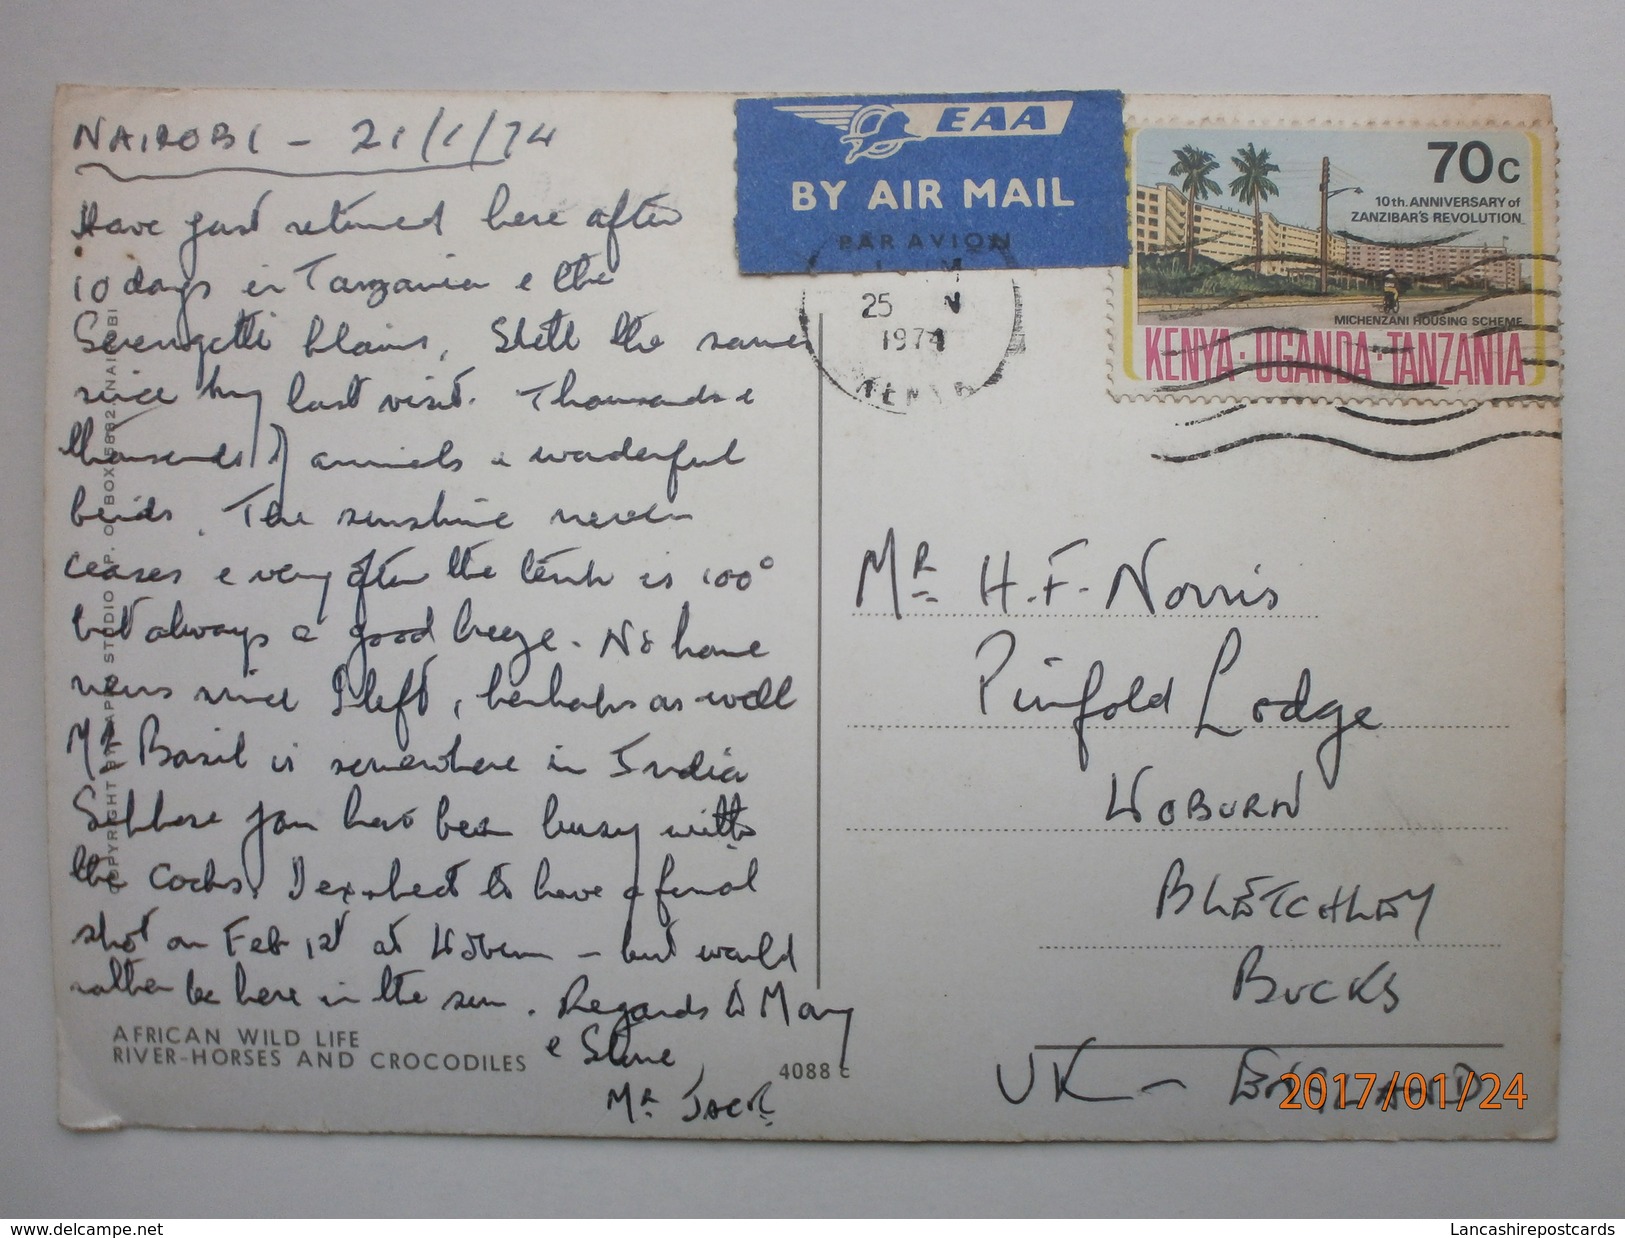 NAIROBI - 21/1/74
Have just returned here after
10 days in Tanzania & the
Serengetti Plains, Still the same
since my last visit. Thousands &
thousands of animals & wonderful
birds. The sunshine never
ceases & very often the temp is 100°
but always a good breeze. No home
news since I left, perhaps as well
MR Basil is somewhere in India
Suppose you have been busy with
the Cocks. I expect to have a final
shot on Feb 1st at Woburn - but would
rather be here in the sun. Regards to Mary
& Steve,
MR JACK.
AFRICAN WILD LIFE
RIVER-HORSES AND CROCODILES
4088 c
COPYRIGHT STUDIO P. O. BOX 5882 NAIROBI
EAA
BY AIR MAIL
PAR AVION
25
1974
KENYA
70c
10th. ANNIVERSARY of
ZANZIBAR'S REVOLUTION
MICHENZANI HOUSING SCHEME
KENYA·UGANDA·TANZANIA
MR H.F. Norris
Pinfold Lodge
WOBURN
BLETCHLEY
BUCKS
UK - ENGLAND
2017/01/24
www.delcampe.net
Lancashirepostcards